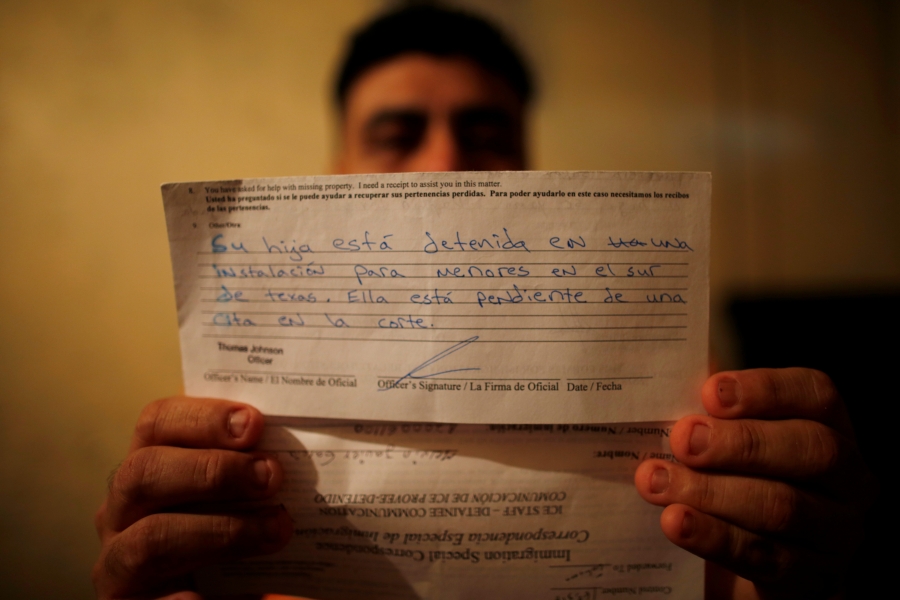 8. You have asked for help with missing property. I need a receipt to assist you in this matter.
Usted ha preguntado si se le puede ayudar a recuperar sus pertenencias perdidas. Para poder ayudarlo en este caso necesitamos los recibos
de las pertenencias.
9. Other/Otra
Su hija está detenida en una
instalación para menores en el sur
de texas. Ella está pendiente de una
cita en la corte.
Thomas Johnson
Officer
Officer's Name / El Nombre de Oficial Officer's Signature / La Firma de Oficial Date / Fecha
Number / Numero de Inmigración
Name / Nombre:
COMUNICACIÓN DE ICE PROVEE-DETENIDO
ICE STAFF – DETAINEE COMMUNICATION
Correspondencia Especial de Inmigración
Immigration Special Correspondence
Forwarded To
Control Number